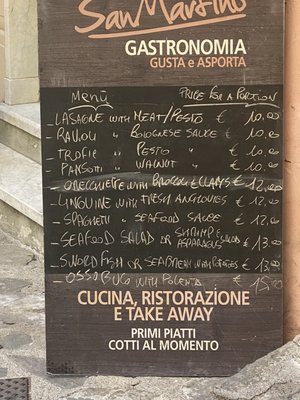 San Martino
GASTRONOMIA
GUSTA e ASPORTA
MENÙ PRICE FOR A PORTION
- LASAGNE WITH MEAT/PESTO € 10,00
- RAVIOLI " BOLOGNESE SAUCE € 10,00
- TROFIE " PESTO € 10,00
- PANSOTI " WALNUT € 10,00
- ORECCHIETTE WITH BROCCOLI E CLAMS € 12,00
- LINGUINE WITH FRESH ANCHOVIES € 12,00
- SPAGHETTI " SEAFOOD SAUCE € 12,00
- SEAFOOD SALAD OR SHRIMP SALAD € 13,00
ASPARAGUS
- SWORDFISH OR SEABREAM WITH POTATOES € 13,00
- OSSOBUCO WITH POLENTA € 15,00
CUCINA, RISTORAZIONE
E TAKE AWAY
PRIMI PIATTI
COTTI AL MOMENTO